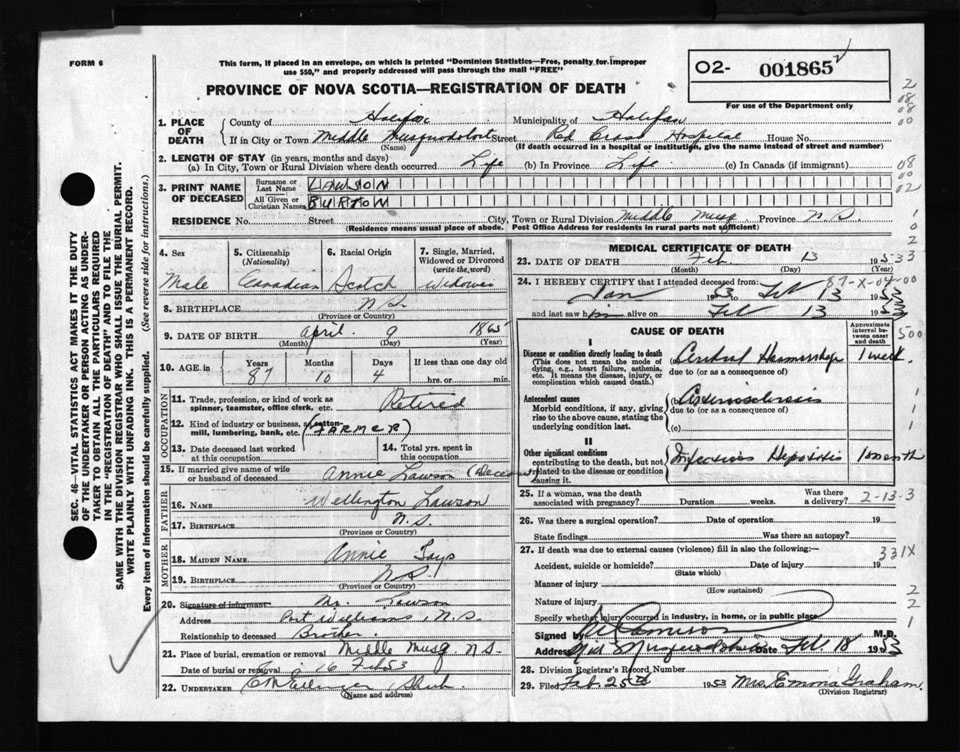 FORM 6
This form, if placed in an envelope, on which is printed "Dominion Statistics—Free, penalty for improper
use $50," and properly addressed will pass through the mail "FREE"
PROVINCE OF NOVA SCOTIA—REGISTRATION OF DEATH
O2- 001865
For use of the Department only
1. PLACE OF DEATH County of Halifax Municipality of Halifax
If in City or Town Middle Musquodoboit Street Red Cross Hospital House No.
(Name) (If death occurred in a hospital or institution, give the name instead of street and number)
2. LENGTH OF STAY (in years, months and days)
(a) In City, Town or Rural Division where death occurred Life (b) In Province Life (c) In Canada (if immigrant)
3. PRINT NAME OF DECEASED Surname or Last Name LAWSON
All Given or Christian Names BURTON
RESIDENCE No. Street City, Town or Rural Division Middle Musq. Province N.S.
(Residence means usual place of abode. Post Office Address for residents in rural parts not sufficient)
4. Sex Male
5. Citizenship (Nationality) Canadian
6. Racial Origin Scotch
7. Single, Married, Widowed or Divorced (write the word) Widower
8. BIRTHPLACE N.S.
(Province or Country)
9. DATE OF BIRTH April 9 1865
(Month) (Day) (Year)
10. AGE in Years 87 Months 10 Days 4 If less than one day old
hrs. or min.
OCCUPATION
11. Trade, profession, or kind of work as spinner, teamster, office clerk, etc. Retired
12. Kind of industry or business, as cotton mill, lumbering, bank, etc. (FARMER)
13. Date deceased last worked at this occupation
14. Total yrs. spent in this occupation
15. If married give name of wife or husband of deceased Annie Lawson
FATHER
16. NAME Wellington Lawson
17. BIRTHPLACE N.S.
(Province or Country)
MOTHER
18. MAIDEN NAME Annie
19. BIRTHPLACE N.S.
(Province or Country)
20. Signature of informant Lawson
Address Port Williams, N.S.
Relationship to deceased Brother
21. Place of burial, cremation or removal Middle Musq. N.S.
Date of burial or removal 16 Feb 53
22. UNDERTAKER
(Name and address)
MEDICAL CERTIFICATE OF DEATH
23. DATE OF DEATH Feb. 13 1953
(Month) (Day) (Year)
24. I HEREBY CERTIFY that I attended deceased from:
Jan 1953 to Feb 13 1953
and last saw him alive on Feb 13 1953
CAUSE OF DEATH
Approximate interval between onset and death
I
Disease or condition directly leading to death
(This does not mean the mode of dying, e.g., heart failure, asthenia, etc. It means the disease, injury, or complication which caused death.)
(a) Cerebral Haemorrhage 1 week
due to (or as a consequence of)
Antecedent causes
Morbid conditions, if any, giving rise to the above cause, stating the underlying condition last.
(b) Arteriosclerosis
due to (or as a consequence of)
(c)
II
Other significant conditions
contributing to the death, but not related to the disease or condition causing it.
Infectious Hepatitis 1 month
25. If a woman, was the death associated with pregnancy? Duration weeks. Was there a delivery? 2-13-3
26. Was there a surgical operation? Date of operation 19
State findings Was there an autopsy?
27. If death was due to external causes (violence) fill in also the following:— 331X
Accident, suicide or homicide? Date of injury 19
(State which)
Manner of injury
(How sustained)
Nature of injury
Specify whether injury occurred in industry, in home, or in public place
Signed by M.D.
Address Mid. Musquodoboit Date Feb. 18 1953
28. Division Registrar's Record Number
29. Filed Feb. 25th 1953 Mrs. Emma Graham
(Division Registrar)
SEC. 46—VITAL STATISTICS ACT MAKES IT THE DUTY
OF THE UNDERTAKER OR PERSON ACTING AS UNDER-
TAKER TO OBTAIN ALL THE PARTICULARS REQUIRED
IN THE "REGISTRATION OF DEATH" AND TO FILE THE
SAME WITH THE DIVISION REGISTRAR WHO SHALL ISSUE THE BURIAL PERMIT.
WRITE PLAINLY WITH UNFADING INK. THIS IS A PERMANENT RECORD.
Every item of information should be carefully supplied. (See reverse side for instructions.)